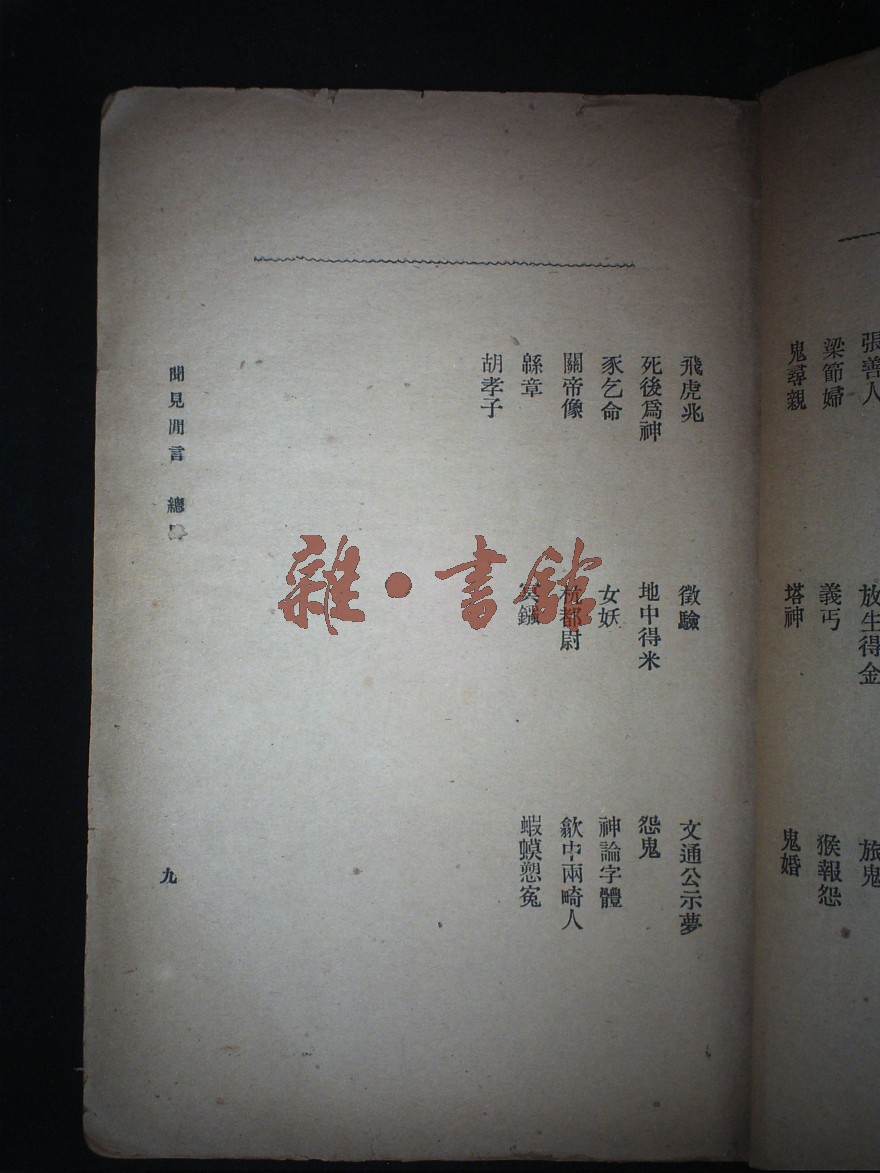 張善人
放生得金
旅鬼
梁節婦
義丐
猴報怨
鬼尋親
塔神
鬼婚
飛虎兆
徵驗
文通公示夢
死後爲神
地中得米
怨鬼
豕乞命
女妖
神論字體
關帝像
杭都尉
歙中兩畸人
緜章
冥鏹
蝦蟆愬冤
胡孝子
聞見閒言 總目
九
雜·書館